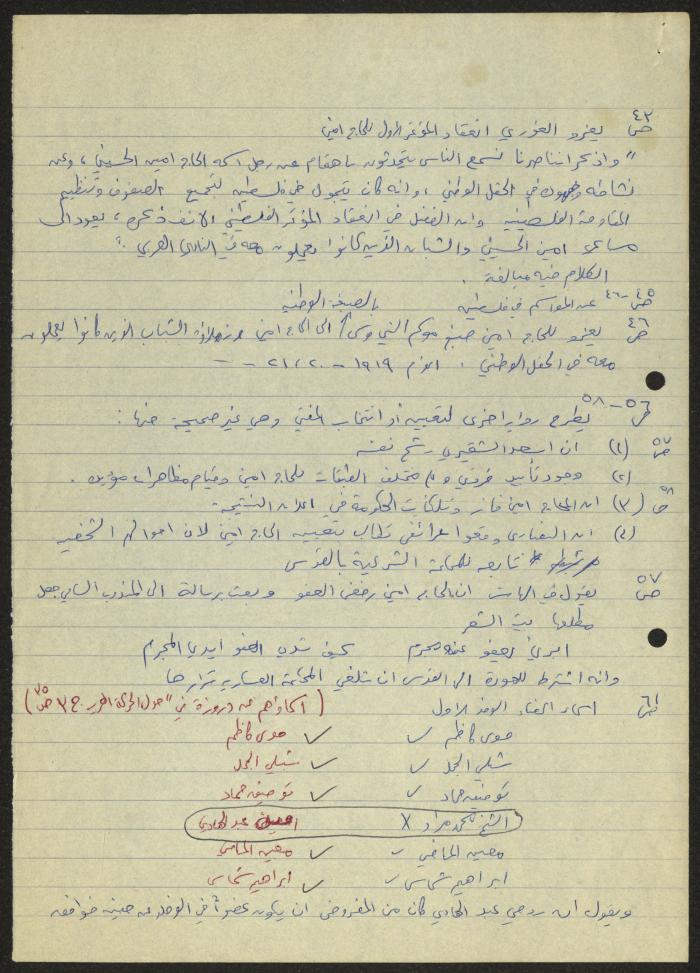 ص ٤٣ يعزو الغوري انعقاد المؤتمر الاول للحاج امين
" واذ بحراتنا صرنا نسمع الناس يتحدثون باهتمام عن رجل اسمه الحاج امين الحسيني، وعن
نشاطه وجهوده في الحقل الوطني، وانه كان يتجول في فلسطين لتجميع الصفوف وتنظيم
المقاومة الفلسطينية وان الفضل في انعقاد المؤتمر الفلسطيني الانف ذكره، يعود الى
مساعي امين الحسيني والشبان الذين كانوا يعملون معه في النادي العربي "
الكلام فيه مبالغة .
ص ٤٥-٤٦ عن المواسم في فلسطين
ص ٤٦ يعزو للحاج امين صبغ موكم النبي موسى بالصبغة الوطنية / الى الحاج امين وزملاؤه الشباب الذين كانوا يعملون
معه في الحقل الوطني، اعوام ١٩١٩ - ٢٠ / ٢١ - -
ص ٥٦-٥٨ يطرح رواية اخرى لتعيين او انتخاب المفتي وهي غير صحيحة منها :
ص ٥٧ (١) ان اسعد الشقيري رشح نفسه
(٢) وجود تأييد قروي و من مختلف الطبقات للحاج امين وقيام مظاهرات مؤيدة .
ص ٥٨ (٣) ان الحاج امين فاز وتلكأت الحكومة في اعلان النتيجة -
(٤) ان النصارى وقعوا عرائض تطالب بتعيين الحاج امين لان احوالهم الشخصية
تابعه للمحكمة الشرعية بالقدس
ص ٥٧ يقول في الهامش ان الحاج امين رفض العفو وبعث برسالة الى المندوب السامي جعل
مطلعها بيت الشعر
امرئ يعفو عنه مجرم كيف تسدي العفو ايدي المجرم
وانه اشترط للعودة الى القدس ان تلغي المحكمة العسكرية قرارها
ص ٦١ اسماء اعضاء الوفد الاول (اسماؤهم عن دروزة في "حول الحركة العربية" ج ٣ ص ٣٥)
موسى كاظم ✓ موسى كاظم ✓
شبلي الجمل ✓ شبلي الجمل ✓
توفيق حماد ✓ توفيق حماد ✓
الشيخ محمد مراد X امين عبد الهادي
معين الماضي ✓ معين الماضي ✓
ابراهيم شماس ✓ ابراهيم شماس ✓
ويقول ان روحي عبد الهادي كان من المفروض ان يكون عضواً في الوفد عن جنين فوافقه